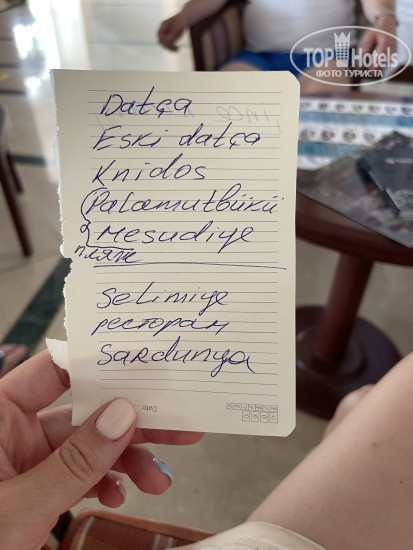 TOP Hotels
ФОТО ТУРИСТА
Datça
Eski datça
Knidos
Palamutbükü
Mesudiye
2 пляж
Selimiye
ресторан
Sardunya
Date